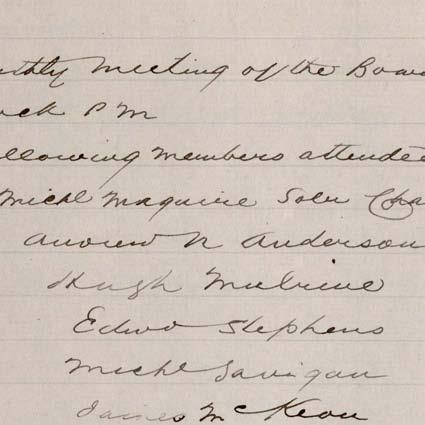 nthly Meeting of the Boar
ock P M
ollowing members attended
Michl Maguire Solr Cha
Andrew N Anderson
Hugh
Edwd Stephens
Michl Gavigan
James McKeon